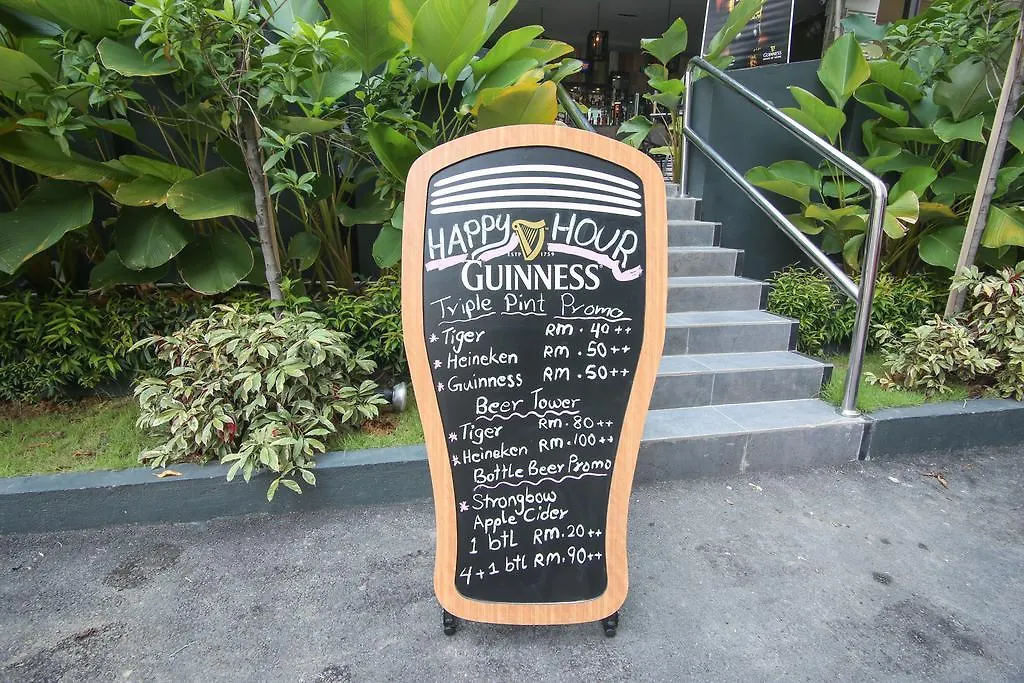 HAPPY HOUR
ESTD 1759
GUINNESS
Triple Pint Promo
* Tiger RM.40++
* Heineken RM.50++
* Guinness RM.50++
Beer Tower
* Tiger RM.80++
* Heineken RM.100++
Bottle Beer Promo
* Strongbow
Apple Cider
1 btl RM.20++
4+1 btl RM.90++
GUINNESS